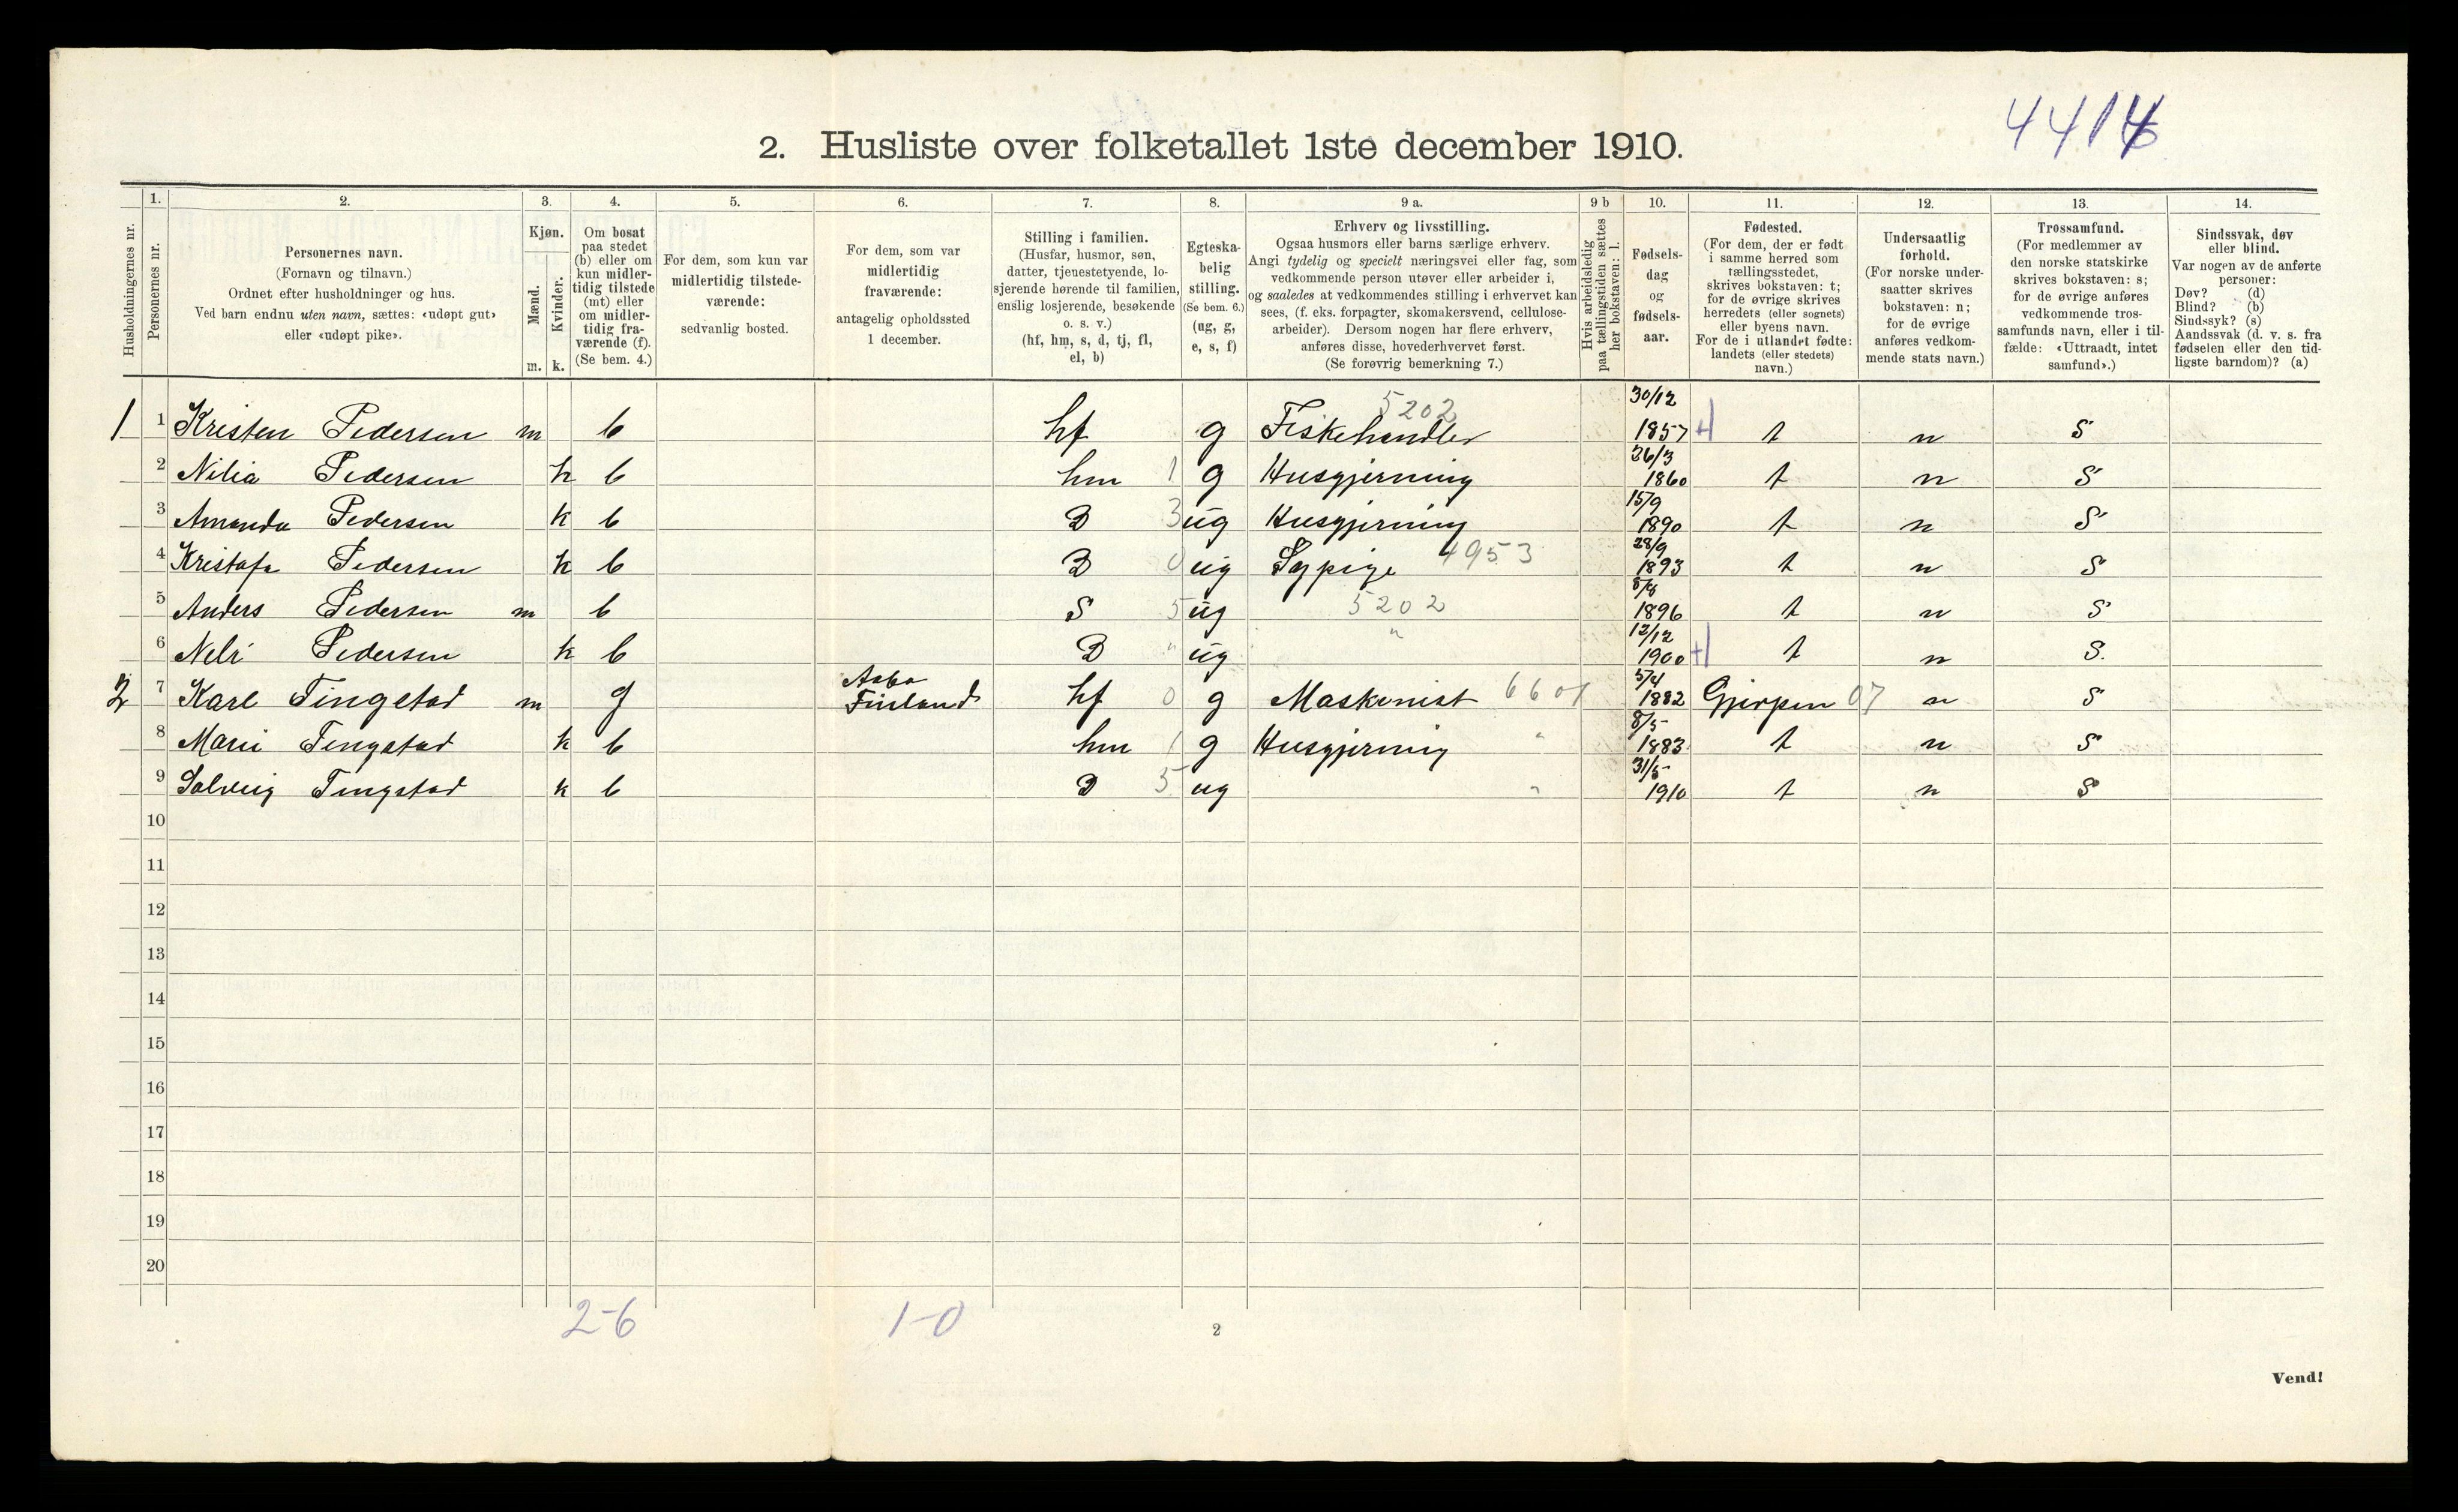 4414
2. Husliste over folketallet 1ste december 1910.
Husholdningernes nr.
1.
Personernes nr.
2.
Personernes navn.
(Fornavn og tilnavn.)
Ordnet efter husholdninger og hus.
Ved barn endnu uten navn, sættes: «udøpt gut»
eller «udøpt pike».
3.
Kjøn.
Mænd.
Kvinder.
m. k.
4.
Om bosat
paa stedet
(b) eller om
kun midler-
tidig tilstede
(mt) eller
om midler-
tidig fra-
værende (f).
(Se bem. 4.)
5.
For dem, som kun var
midlertidig tilstede-
værende:
sedvanlig bosted.
6.
For dem, som var
midlertidig
fraværende:
antagelig opholdssted
1 december.
7.
Stilling i familien.
(Husfar, husmor, søn,
datter, tjenestetyende, lo-
sjerende hørende til familien,
enslig losjerende, besøkende
o. s. v.)
(hf, hm, s, d, tj, fl,
el, b)
8.
Egteska-
belig
stilling.
(Se bem. 6.)
(ug, g,
e, s, f)
9 a.
Erhverv og livsstilling.
Ogsaa husmors eller barns særlige erhverv.
Angi tydelig og specielt næringsvei eller fag, som
vedkommende person utøver eller arbeider i,
og saaledes at vedkommendes stilling i erhvervet kan
sees, (f. eks. forpagter, skomakersvend, cellulose-
arbeider). Dersom nogen har flere erhverv,
anføres disse, hovederhvervet først.
(Se forøvrig bemerkning 7.)
9 b
Hvis arbeidsledig
paa tællingstiden sættes
her bokstaven: l.
10.
Fødsels-
dag
og
fødsels-
aar.
11.
Fødested.
(For dem, der er født
i samme herred som
tællingsstedet,
skrives bokstaven: t;
for de øvrige skrives
herredets (eller sognets)
eller byens navn.
For de i utlandet fødte:
landets (eller stedets)
navn.)
12.
Undersaatlig
forhold.
(For norske under-
saatter skrives
bokstaven: n;
for de øvrige
anføres vedkom-
mende stats navn.)
13.
Trossamfund.
(For medlemmer av
den norske statskirke
skrives bokstaven: s;
for de øvrige anføres
vedkommende tros-
samfunds navn, eller i til-
fælde: «Uttraadt, intet
samfund».)
14.
Sindssvak, døv
eller blind.
Var nogen av de anførte
personer:
Døv? (d)
Blind? (b)
Sindssyk? (s)
Aandssvak (d. v. s. fra
fødselen eller den tid-
ligste barndom)? (a)
1 1 Kristen Pedersen m b hf g Fiskehandler 5202 30/12 1857 t n S
2 Nilia Pedersen k b hm 1 g Husgjerning 26/3 1860 t n S
3 Amanda Pedersen k b D 3 ug Husgjerning 15/9 1890 t n S
4 Pedersen k b D 0 ug Sypige 4953 28/9 1893 t n S
5 Anders Pedersen m b S 5 ug 5202 1896 t n S
6 Pedersen k b D " ug " 12/12 1900 t n S.
2 7 Karl Tingstad m f Aabo Finland hf 0 g Maskinist 6601 5/4 1882 Gjerpen 07 n S
8 Marie Tingstad k b hm 1 g Husgjerning " 8/5 1883 t n S
9 Solveig Tingstad k b D 5 ug " 31/5 1910 t n S
10
11
12
13
14
15
16
17
18
19
20
2-6 1-0
2
Vend!